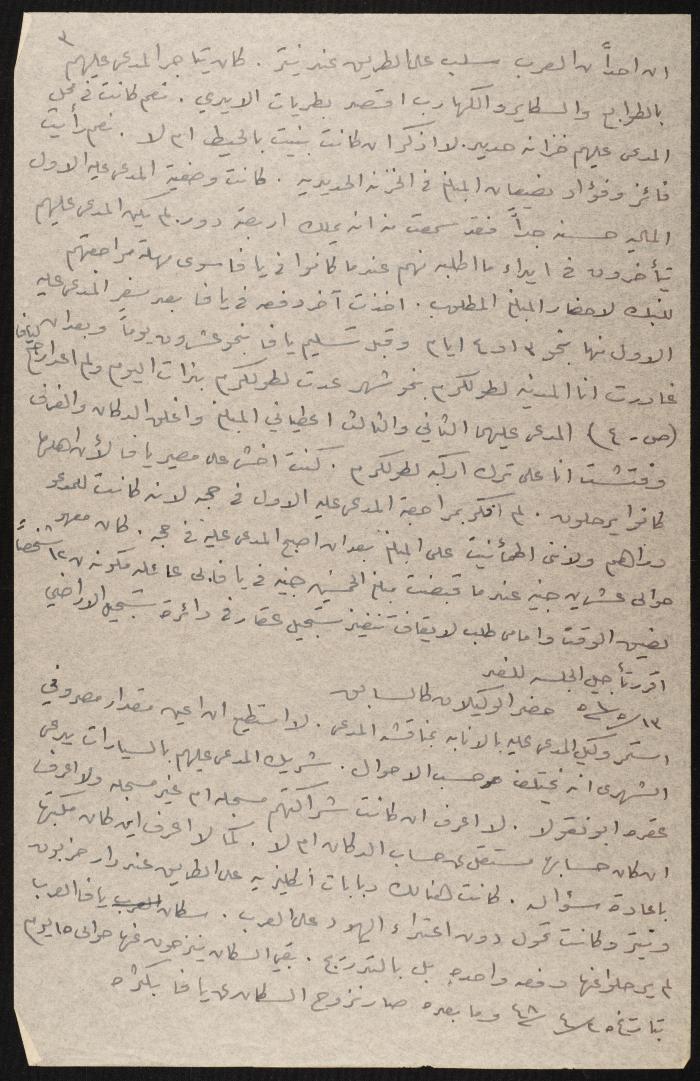 ٣
ان احداً من العرب سلب على الطريق عند نيتر . كان يتاجر المدعى عليهم
بالطوابع والسكاير والكهارب اقتصد بطريات الايدي . نعم كانت في محل
المدعى عليهم خزانة حديد . لا اذكر ان كانت بنيت بالحيط ام لا . نعم رأيت
فائز وفؤاد يضعان المبلغ في الخزنة الحديدية . كانت وضعية المدعى عليه الاول
المالية حسنة جداً فقد سمعت منه انه يملك اربعة دور . لم يكن المدعى عليهم
يتأخرون في ايداء ما اطلبه منهم عندما كانوا في يافا سوى مهلة مراجعتهم
للبنك لاحضار المبلغ المطلوب . اخذت آخر دفعة في يافا بعد سفر المدعى عليه
الاول منها بنحو ٣ او ٤ ايام وقبل تسليم يافا بنحو عشرون يوماً وبعد ان
غادرت انا المدينة لطولكرم بنحو شهر عدت لطولكرم بذات اليوم ولم اعد ارجع ليافا
(ص - ٤) المدعى عليهما الثاني والثالث اعطياني المبلغ واغلق الدكان وانصرف
وفتشت انا على ترك اركبه لطولكرم . كنت اخشى على مصير يافا لأن اهلها
كانوا يرحلون . لم افكر بمراجعة المدعى عليه الاول في حجه لانه كانت للمدعو
دراهم ولانني اطمأنيت على المبلغ بعد ان اصبح المدعى عليه في حجه . كان معهو
حوالى عشرين جنيه عندما قبضت مبلغ الخمسين جنيه في يافا . لى عائلة مكونة من ١٢ شخصاً
لضيق الوقت وامامى طلب لايقاف تنفيذ تسجيل عقار في دائرة تسجيل الاراضي
اقرر تأجيل الجلسة للغد
١٣/٥/٥١ حضر الوكيلان كالسابق
استمر وكيل المدعى عليه بالانابة بمناقشة المدعى . لا استطيع ان اعين مقدار مصروفي
الشهرى انه يختلف حسب الاحوال . شريك المدعى عليهم بالسيارات يدعى
عقره ابو نقولا . لا اعرف ان كانت شراكتهم مسجلة ام غير مسجلة ولا اعرف
ان كان حسابها مستقل عن حساب الدكان ام لا . كما لا اعرف اين كان مكتبها
باعادة سؤاله . كانت هنالك دبابات انكليزية على الطريق عند دار حزبون
ونيتر وكانت تحول دون اعتداء اليهود على العرب . سكان يافا العرب
لم يرحلوا عنها دفعة واحدة بل بالتدريج . بقي السكان ينزحون عنها حوالى ١٥ يوم
بتاريخ ٤/٤٨ وما بعده صار نزوح السكان من يافا بكثرة